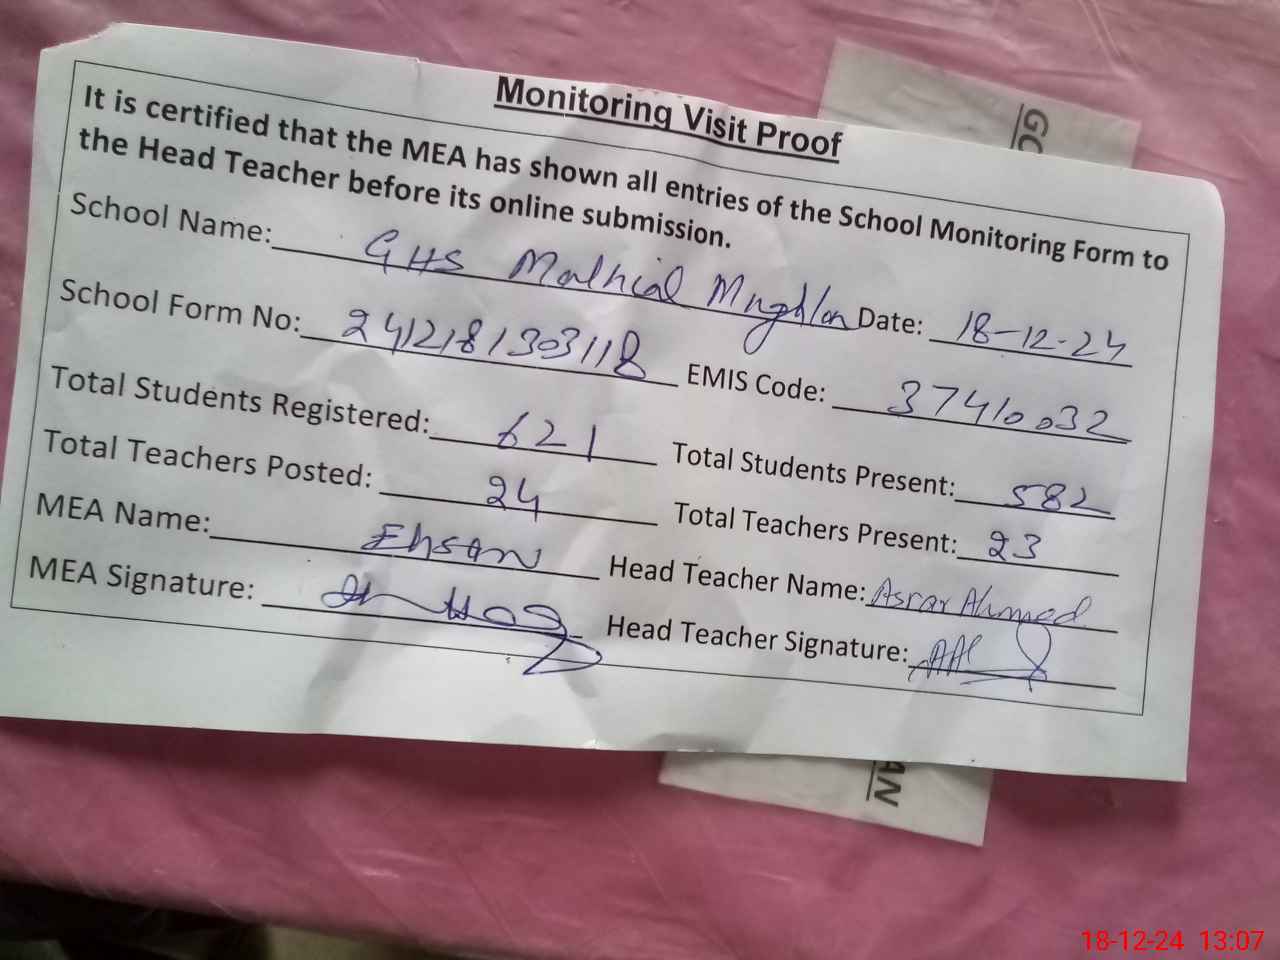 Monitoring Visit Proof
It is certified that the MEA has shown all entries of the School Monitoring Form to
the Head Teacher before its online submission.
School Name: GHS Malhial Mughlan Date: 18-12-24
School Form No: 2412181303118 EMIS Code: 37410032
Total Students Registered: 621 Total Students Present: 582
Total Teachers Posted: 24 Total Teachers Present: 23
MEA Name: Ehsan Head Teacher Name: Asrar Ahmed
MEA Signature: Head Teacher Signature:
GO
AN
18-12-24 13:07